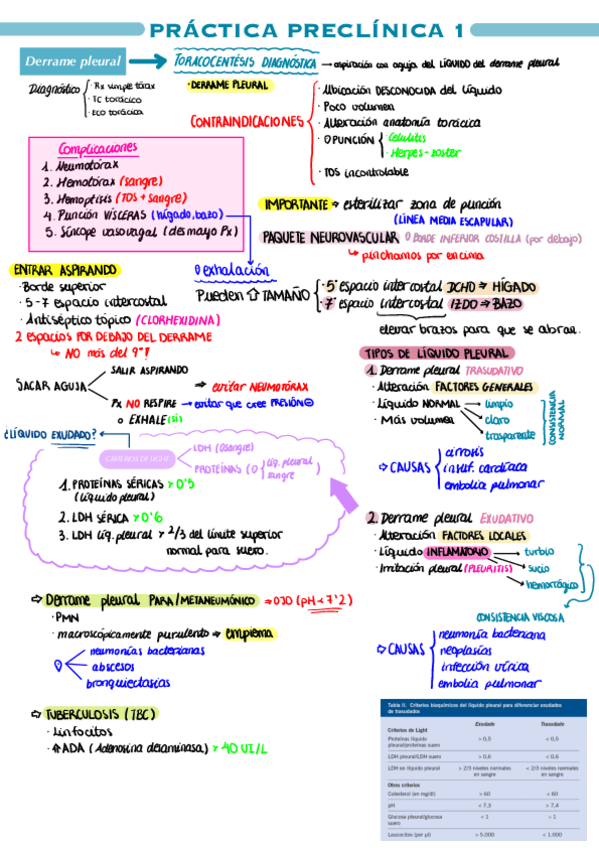 PRÁCTICA PRECLÍNICA 1
Derrame pleural → TORACOCENTÉSIS DIAGNÓSTICA → aspiración con aguja del LÍQUIDO del derrame pleural
Diagnóstico
· Rx simple tórax
· TC torácico
· ECO torácica
· DERRAME PLEURAL
CONTRAINDICACIONES
· Ubicación DESCONOCIDA del líquido
· Poco volumen
· Alteración anatomía torácica
· PUNCIÓN
· Celulitis
· Herpes-zoster
· TOS incontrolable
Complicaciones
1. Neumotórax
2. Hemotórax (sangre)
3. Hemoptisis (TOS + sangre)
4. Punción VÍSCERAS (hígado, bazo)
5. Síncope vasovagal (desmayo Px)
IMPORTANTE → esterilizar zona de punción
(LÍNEA MEDIA ESCAPULAR)
PAQUETE NEUROVASCULAR BORDE INFERIOR COSTILLA (por debajo)
↪ pinchamos por encima
ENTRAR ASPIRANDO
· Borde superior
· 5-7 espacio intercostal
· Antiséptico tópico (CLORHEXIDINA)
2 espacios POR DEBAJO DEL DERRAME
↪ NO más del 9º!
exhalación
Pueden ⇧ TAMAÑO
· 5º espacio intercostal DCHO ⇒ HÍGADO
· 7º espacio intercostal IZDO ⇒ BAZO
elevar brazos para que se abran.
SACAR AGUJA
SALIR ASPIRANDO
⇒ evitar NEUMOTÓRAX
Px NO RESPIRE → evitar que cree PRESIÓN ⊖
o EXHALE (sí)
¿LÍQUIDO EXUDADO?
CRITERIOS DE LIGHT
LDH (sangre)
PROTEÍNAS
líq. pleural
sangre
1. PROTEÍNAS SÉRICAS > 0'5
(líquido pleural)
2. LDH SÉRICA > 0'6
3. LDH líq. pleural > 2/3 del límite superior
normal para suero.
TIPOS DE LÍQUIDO PLEURAL
1. Derrame pleural TRASUDATIVO
· Alteración FACTORES GENERALES
· Líquido NORMAL → limpio
· Más volumen → claro
trasparente
CONSISTENCIA NORMAL
⇨ CAUSAS
cirrosis
insuf. cardíaca
embolia pulmonar
2. Derrame pleural EXUDATIVO
· Alteración FACTORES LOCALES
· Líquido INFLAMATORIO → turbio
· Irritación pleural (PLEURITIS) → sucio
hemorrágico
CONSISTENCIA VISCOSA
⇨ CAUSAS
neumonía bacteriana
neoplasias
infección vírica
embolia pulmonar
⇨ Derrame pleural PARA/METANEUMÓNICO ⇒ OJO (pH < 7'2)
· PMN
· macroscópicamente purulento ⇒ empiema
neumonías bacterianas
abscesos
bronquiectasias
⇨ TUBERCULOSIS (TBC)
· Linfocitos
· ⇧ ADA (Adenosina desaminasa) > 40 UI/L
Tabla II. Criterios bioquímicos del líquido pleural para diferenciar exudados de trasudados
Exudado Trasudado
Criterios de Light
Proteínas líquido pleural/proteínas suero > 0,5 < 0,5
LDH pleural/LDH suero > 0,6 < 0,6
LDH en líquido pleural > 2/3 niveles normales en sangre < 2/3 niveles normales en sangre
Otros criterios
Colesterol (en mg/dl) > 60 < 60
pH < 7,3 > 7,4
Glucosa pleural/glucosa suero < 1 > 1
Leucocitos (per µl) > 5.000 < 1.000